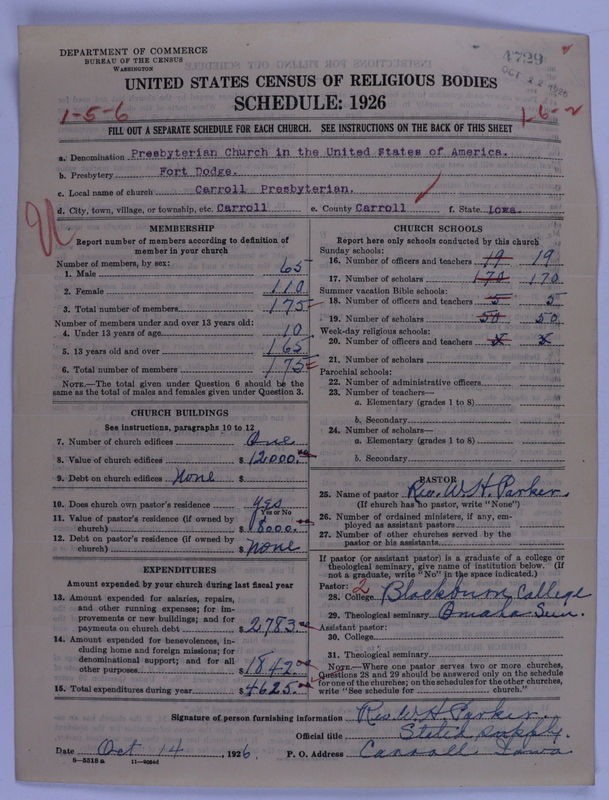 DEPARTMENT OF COMMERCE
BUREAU OF THE CENSUS
WASHINGTON
4729
OCT 22
UNITED STATES CENSUS OF RELIGIOUS BODIES
SCHEDULE: 1926
1-5-6
1-6-2
FILL OUT A SEPARATE SCHEDULE FOR EACH CHURCH. SEE INSTRUCTIONS ON THE BACK OF THIS SHEET
a. Denomination Presbyterian Church in the United States of America.
b. Presbytery Fort Dodge.
c. Local name of church Carroll Presbyterian.
d. City, town, village, or township, etc. Carroll e. County Carroll f. State Iowa.
MEMBERSHIP
Report number of members according to definition of
member in your church
Number of members, by sex:
1. Male 65
2. Female 110
3. Total number of members 175
Number of members under and over 13 years old:
4. Under 13 years of age 10
5. 13 years old and over 165
6. Total number of members 175
NOTE.—The total given under Question 6 should be the
same as the total of males and females given under Question 3.
CHURCH BUILDINGS
See instructions, paragraphs 10 to 12
7. Number of church edifices One
8. Value of church edifices $ 12000.
9. Debt on church edifices None $
10. Does church own pastor's residence yes
Yes or No
11. Value of pastor's residence (if owned by
church) $ 8000.
12. Debt on pastor's residence (if owned by
church) $ None
EXPENDITURES
Amount expended by your church during last fiscal year
13. Amount expended for salaries, repairs,
and other running expenses; for im-
provements or new buildings; and for
payments on church debt $ 2783
14. Amount expended for benevolences, in-
cluding home and foreign missions; for
denominational support; and for all
other purposes $ 1842
15. Total expenditures during year $ 4625
CHURCH SCHOOLS
Report here only schools conducted by this church
Sunday schools:
16. Number of officers and teachers 19 19
17. Number of scholars 170 170
Summer vacation Bible schools:
18. Number of officers and teachers 5 5
19. Number of scholars 50 50
Week-day religious schools:
20. Number of officers and teachers x x
21. Number of scholars
Parochial schools:
22. Number of administrative officers
23. Number of teachers—
a. Elementary (grades 1 to 8)
b. Secondary
24. Number of scholars—
a. Elementary (grades 1 to 8)
b. Secondary
PASTOR
25. Name of pastor Rev. W. H. Parker
(If church has no pastor, write "None")
26. Number of ordained ministers, if any, em-
ployed as assistant pastors
27. Number of other churches served by the
pastor or his assistants
If pastor (or assistant pastor) is a graduate of a college or
theological seminary, give name of institution below. (If
not a graduate, write "No" in the space indicated.)
Pastor: 2
28. College Blackburn College
29. Theological seminary Omaha Sem.
Assistant pastor:
30. College
31. Theological seminary
NOTE.—Where one pastor serves two or more churches,
Questions 28 and 29 should be answered only on the schedule
for one of the churches; on the schedules for the other churches,
write "See schedule for church."
Signature of person furnishing information Rev. W. H. Parker
Official title Stated supply.
Date Oct 14, 1926. P. O. Address Carroll Iowa
8—5519 a 11—9064d